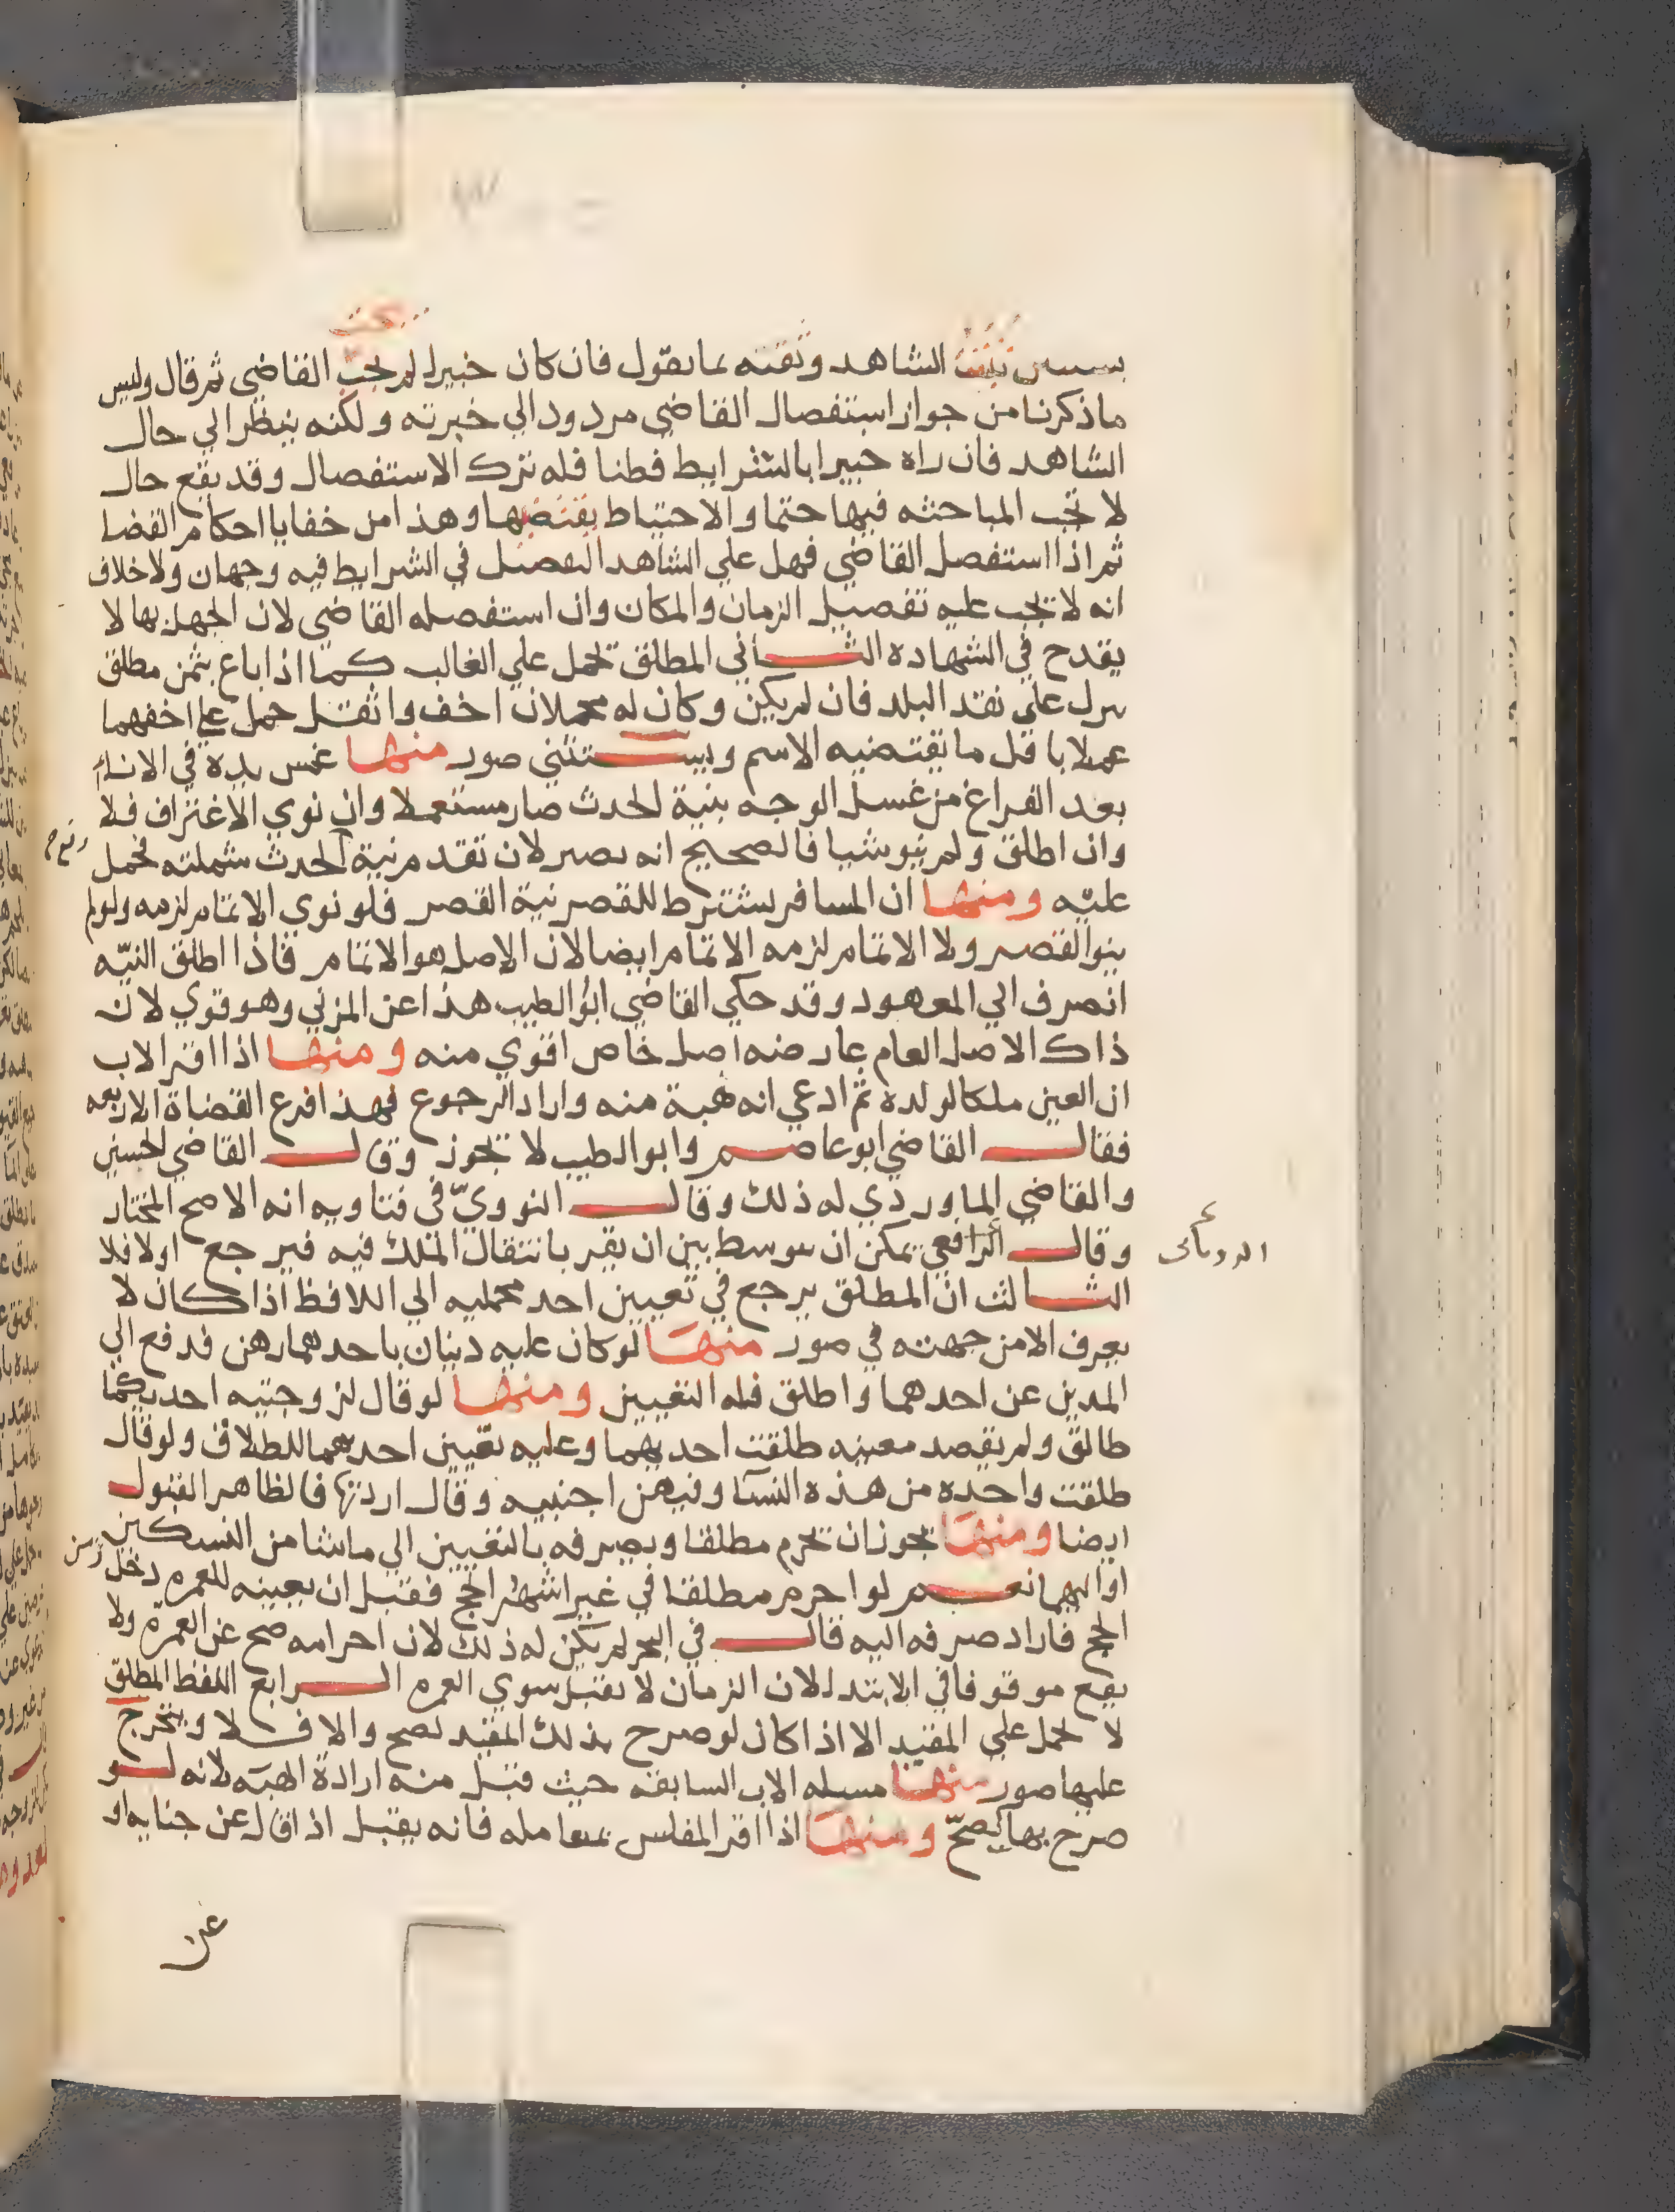 تثبت الشاهد وثقته بما يقول فان كان خبيرا لم يجب القاضي ثم قال وليس
ما ذكرنا من جواز استفصال القاضي مردود الي خبرته ولكنه ينظر الي حال
الشاهد فان راه خبيرا بالشرايط فطنا فله ترك الاستفصال وقد يقع حال
لا تجب المباحثه فيها حتما والاحتياط يقتضيها وهذا من خفايا احكام القضا
ثم اذا استفصل القاضي فهل علي الشاهد التفصيل في الشرايط فيه وجهان ولا خلاف
انه لا يجب عليه تفصيل الزمان والمكان وان استفصله القاضي لان الجهل بها لا
يقدح في الشهاده الثاني المطلق يحمل علي الغالب كما اذا باع بثمن مطلق
نزل علي نقد البلد فان لم يكن وكان له محملان اخف واثقل حمل علي اخفهما
عملا باقل ما يقتضيه الاسم ويستثني صور منها غمس يده في الاناء
بعد الفراغ من غسل الوجه بنية الحدث صار مستعملا وان نوي الاغتراف فلا
وان اطلق ولم ينو شيا فالصحيح انه يصير لان تقدم نية الحدث شملته فحمل
عليه ومنها ان المسافر يشترط للقصر نية القصر فلو نوي الاتمام لزمه ولو لم
ينو القصر ولا الاتمام لزمه الاتمام ايضا لان الاصل هو الاتمام فاذا اطلق النيه
انصرف الي المعهود وقد حكي القاضي ابو الطيب هذا عن المزني وهو قوي لان
ذاك الاصل العام عارضه اصل خاص اقوي منه ومنها اذا اقر الاب
ان العين ملكا لولده ثم ادعي انه هبة منه واراد الرجوع فهذا فرع القضاة الاربعه
فقال القاضي ابو عاصم وابو الطيب لا يجوز وقال القاضي الحسين
والقاضي الماوردي له ذلك وقال النووي في فتاويه انه الاصح المختار
وقال الرافعي يمكن ان يتوسط بين ان يقر بانتقال الملك فيه فيرجع اولا فلا
الثالث ان المطلق يرجع في تعيين احد محمليه الي اللافظ اذا كان لا
يعرف الا من جهته في صور منها لو كان عليه دينان باحدهما رهن فدفع الي
المدين عن احدهما واطلق فله التعيين ومنها لو قال لزوجتيه احديكما
طالق ولم يقصد معينه طلقت احديهما وعليه تعيين احديهما للطلاق ولو قال
طلقت واحده من هذه النسا وفيهن اجنبيه وقال اردتها فالظاهر القبول
ايضا ومنها يجوز ان يحرم مطلقا ويصرفه بالتعيين الي ما شا من النسكين
او اليهما نعم لو احرم مطلقا في غير اشهر الحج فقبل ان يعينه للعمره دخل زمن
الحج فاراد صرفه اليه قال في البحر لم يكن له ذلك لان احرامه صح عن العمره ولا
يقع موقوفا في الابتدا لان الزمان لا يقبل سوي العمره الرابع اللفظ المطلق
لا يحمل علي المقيد الا اذا كان لو صرح بذلك المقيد لصح والا فلا ويتخرج
عليها صور منها مسله الاب السابقه حيث قبل منه ارادة الهبه لانه لو
صرح بها لصح ومنها اذا اقر المفلس بمعامله فانه يقبل اذا قال عن جنايه او
عن